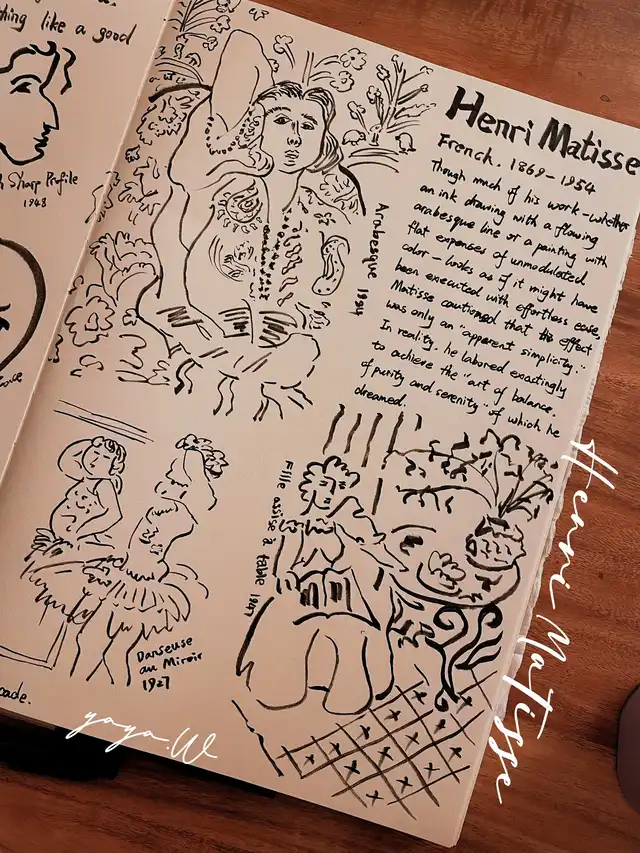 thing like a good
Sharp Profile
1948
Henri Matisse
French. 1869-1954
Though much of his work-whether
an ink drawing with a flowing
arabesque line or a painting with
flat expenses of unmodulated
color-looks as if it might have
been executed with effortless ease,
Matisse cautioned that the effect
was only an "apparent simplicity."
In reality, he labored exactingly
to achieve the "art of balance,
of purity and serenity" of which he
dreamed.
Arabesque 1924
Fille assise à table 1947
Danseuse
au Miroir
1927
Henri Matisse
yaya.W